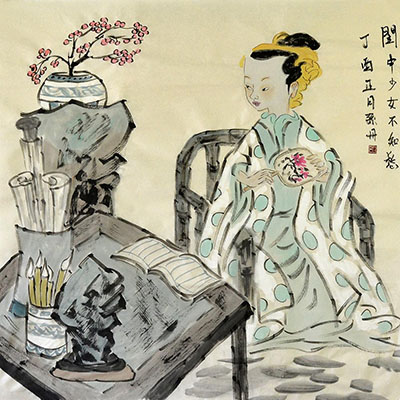 閨中少女不知愁
丁酉正月